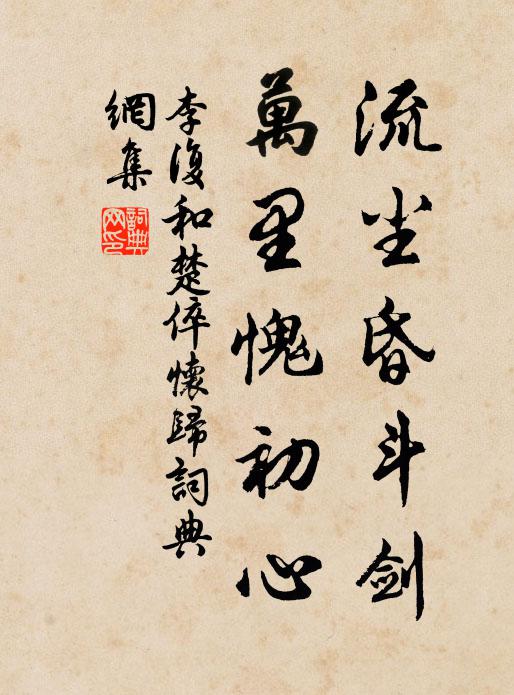 流尘昏斗剑
萬里愧初心
李復和楚倅懷歸詞典
網集
詞典网印